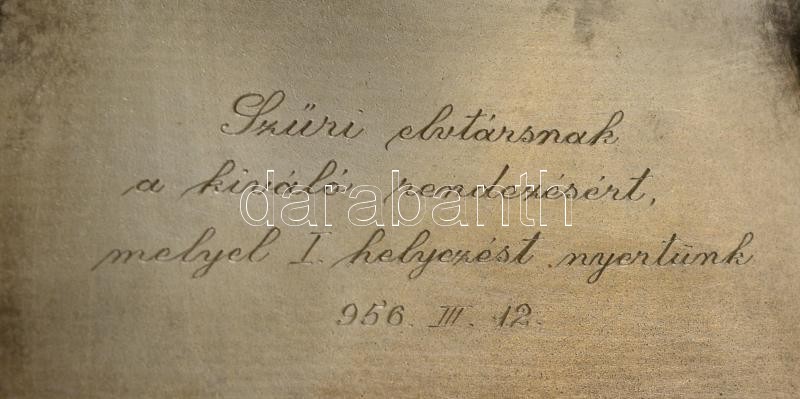 Szűri elvtársnak
a kiváló rendezésért,
melyel I. helyezést nyertünk
956. III. 12.
darabanth